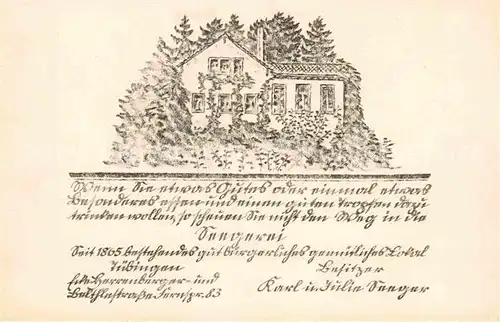 Wenn Sie etwas Gutes oder einmal etwas
Besonderes essen und einen guten Tropfen dazu
trinken wollen, so scheuen Sie nicht den Weg in die
Seegerei
Seit 1865 bestehendes gut bürgerliches gemütliches Lokal
Tübingen
Ecke Herrenberger- und
Belthlestraße Fernspr. 83
Besitzer
Karl u. Julie Seeger